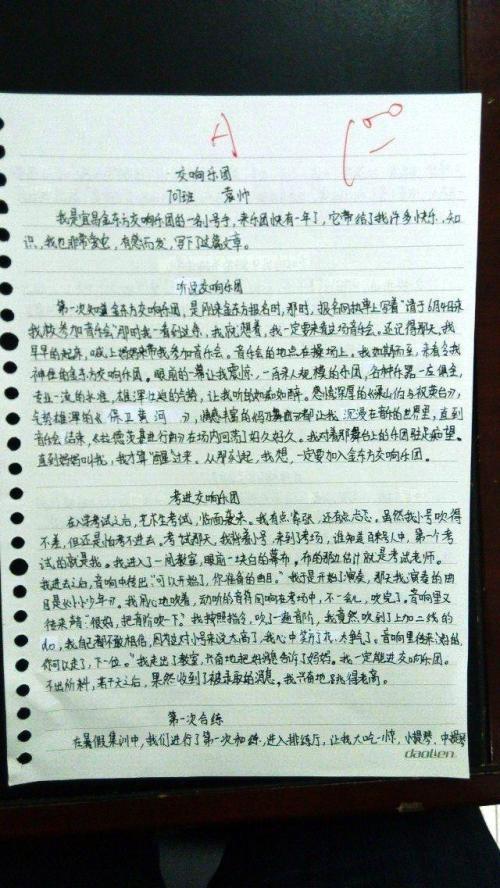 A
交响乐团
阿班 袁帅
我是宜昌金东方交响乐团的一名小号手,来乐团快有一年了,它带给了我许多快乐、知
识,我也非常爱它,有感而发,写下这篇文章。
听说交响乐团
第一次知道金东方交响乐团,是刚来金东方报名时,那时,报名回执单上写着“请于6月4日来
我校参加音乐会”那时我一看到这条,我就想着,我一定要来看这场音乐会。还记得那天,我
早早的起床,喊上妈妈来带我参加音乐会。音乐会的地点在操场上。我如期而至,来看令我
神往的金东方交响乐团。眼前的一幕让我震惊,一百来人规模的乐团,各种乐器一应俱全,
专业一流的水准,雄浑壮阔的气势,让我听的如痴如醉。感情深厚的《梁山伯与祝英台》,
气势雄浑的《保卫黄河》,情感丰富的《 舞曲》都让我沉浸在音乐的世界里,直到
音乐会结束,《拉德茨基进行曲》在场内回荡了好久好久。我对着那舞台上的乐团驻足痴望。
直到妈妈叫我,我才算“醒”过来。从那刻起,我想,一定要加入金东方交响乐团。
考进交响乐团
在入学考试之后,艺术生考试,临面袭来。我有点紧张,还有点忐忑。虽然我小号吹得
不差,但还是怕考不进去。考试那天,我背着小号,来到考场,谁知道百来号人中,第一个考
试的就是我。我进入了一间教室,眼前一块白的幕布。布的那边估计就是考试老师。
我进去之后,音响中传出“可以开始了,你准备的曲目。”我于是开始了演奏,那天我演奏的曲
目是《小小少年》。我用心地吹着,动听的音符回响在考场中,不一会儿,吹完了。音响里又
传来声音:“很好,把音阶吹一下。”我按照指令,吹了一遍音阶,我竟然吹到了上加二线的
do,我自己都不敢相信,因为这对小号来说太高了,我心中笑了花,太帅了。音响里传来:“好的,
你可以走了,下一位。”我走出了教室,兴奋地把好消息告诉了妈妈。我一定能进交响乐团。
不出所料,若干天之后,果然收到了被录取的消息。我兴奋地跳得老高。
第一次合练
在暑假集训中,我们进行了第一次和练,进入排练厅,让我大吃一惊,小提琴、中提琴
daolen